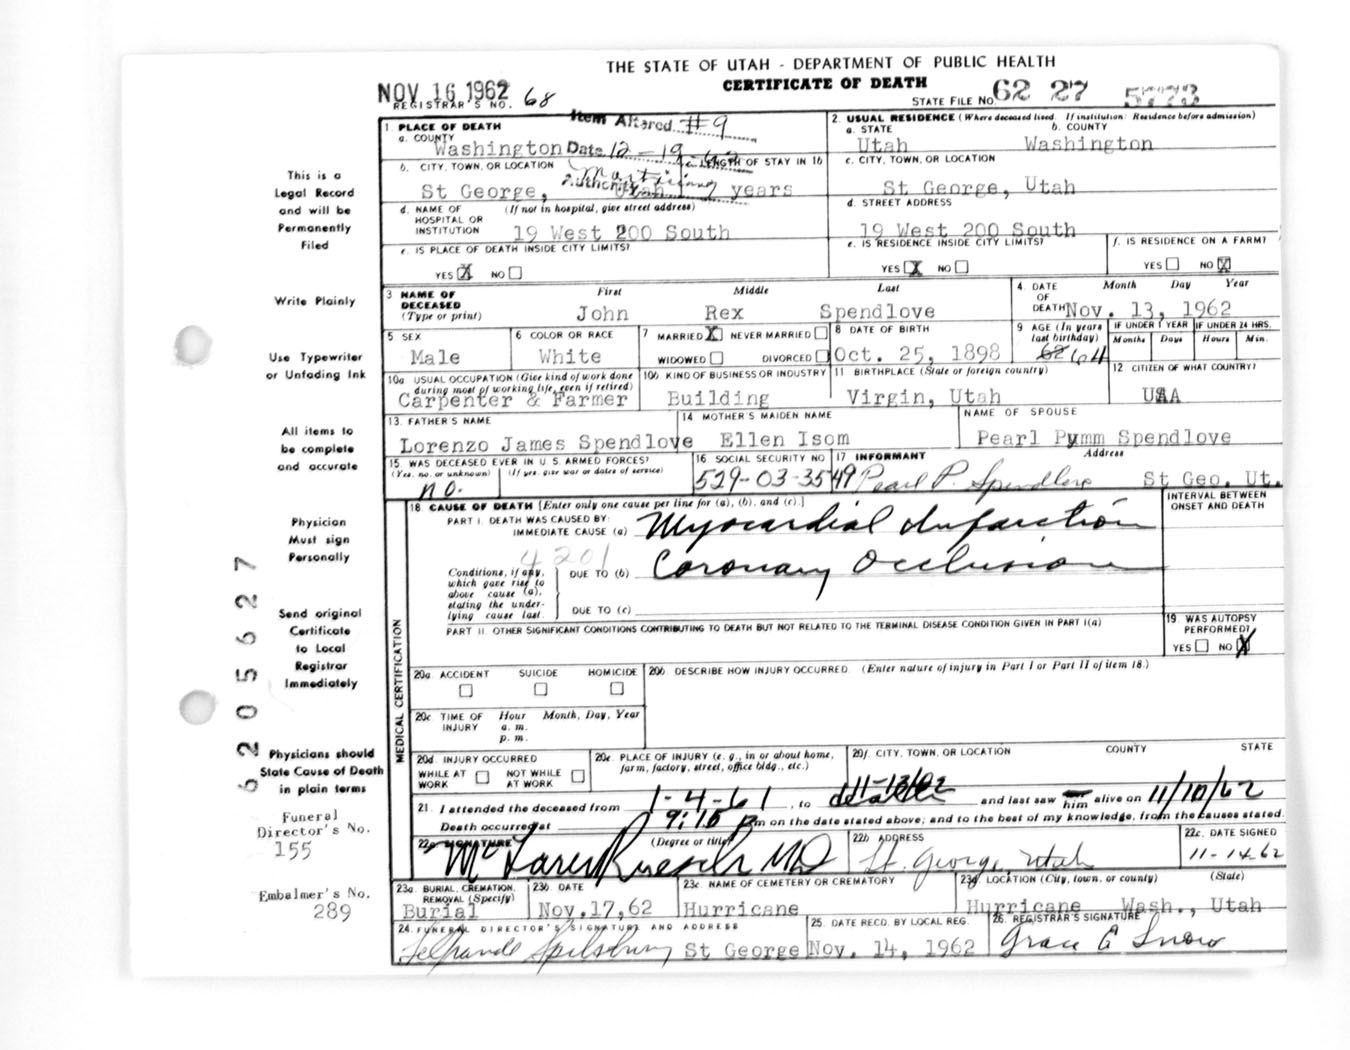 THE STATE OF UTAH - DEPARTMENT OF PUBLIC HEALTH
CERTIFICATE OF DEATH
NOV 16 1962
REGISTRAR'S NO. 68
STATE FILE NO. 62 27 5773
Item Altered #9
Date 12-19-62
Authority
1. PLACE OF DEATH
a. COUNTY
Washington
b. CITY, TOWN, OR LOCATION
St George, Utah
c. LENGTH OF STAY IN 1b
years
d. NAME OF HOSPITAL OR INSTITUTION (If not in hospital, give street address)
19 West 200 South
e. IS PLACE OF DEATH INSIDE CITY LIMITS?
YES X NO
2. USUAL RESIDENCE (Where deceased lived. If institution: Residence before admission)
a. STATE b. COUNTY
Utah Washington
c. CITY, TOWN, OR LOCATION
St George, Utah
d. STREET ADDRESS
19 West 200 South
e. IS RESIDENCE INSIDE CITY LIMITS?
YES X NO
f. IS RESIDENCE ON A FARM?
YES NO X
3 NAME OF DECEASED (Type or print)
First Middle Last
John Rex Spendlove
4. DATE OF DEATH Month Day Year
Nov. 13, 1962
5 SEX
Male
6 COLOR OR RACE
White
7 MARRIED X NEVER MARRIED
WIDOWED DIVORCED
8 DATE OF BIRTH
Oct. 25, 1898
9 AGE (In years last birthday)
62 64
IF UNDER 1 YEAR IF UNDER 24 HRS.
Months Days Hours Min.
10a USUAL OCCUPATION (Give kind of work done during most of working life, even if retired)
Carpenter & Farmer
10b KIND OF BUSINESS OR INDUSTRY
Building
11 BIRTHPLACE (State or foreign country)
Virgin, Utah
12 CITIZEN OF WHAT COUNTRY?
USA
13. FATHER'S NAME
Lorenzo James Spendlove
14 MOTHER'S MAIDEN NAME
Ellen Isom
NAME OF SPOUSE
Pearl Pymm Spendlove
15. WAS DECEASED EVER IN U.S. ARMED FORCES?
(Yes, no, or unknown) (If yes, give war or dates of service)
no.
16 SOCIAL SECURITY NO
529-03-3549
17 INFORMANT Address
Pearl P. Spendlove St Geo. Ut.
18 CAUSE OF DEATH [Enter only one cause per line for (a), (b), and (c).]
INTERVAL BETWEEN ONSET AND DEATH
PART I. DEATH WAS CAUSED BY:
IMMEDIATE CAUSE (a) Myocardial Infarction
4201
Conditions, if any, which gave rise to above cause (a), stating the underlying cause last.
DUE TO (b) Coronary Occlusion
DUE TO (c)
PART II. OTHER SIGNIFICANT CONDITIONS CONTRIBUTING TO DEATH BUT NOT RELATED TO THE TERMINAL DISEASE CONDITION GIVEN IN PART I(a)
19 WAS AUTOPSY PERFORMED?
YES NO X
MEDICAL CERTIFICATION
20a ACCIDENT SUICIDE HOMICIDE
20b. DESCRIBE HOW INJURY OCCURRED. (Enter nature of injury in Part I or Part II of item 18.)
20c TIME OF INJURY Hour Month, Day, Year
a. m.
p. m.
20d. INJURY OCCURRED
WHILE AT WORK NOT WHILE AT WORK
20e. PLACE OF INJURY (e. g., in or about home, farm, factory, street, office bldg., etc.)
20f. CITY, TOWN, OR LOCATION COUNTY STATE
21. I attended the deceased from 1-4-61, to death 11-13/62 and last saw him alive on 11/10/62
Death occurred at 9:15 p m on the date stated above; and to the best of my knowledge, from the causes stated.
22a SIGNATURE (Degree or title)
McLaren Ruesch MD
22b ADDRESS
St. George, Utah
22c. DATE SIGNED
11-14-62
23a. BURIAL, CREMATION, REMOVAL (Specify)
Burial
23b. DATE
Nov.17,62
23c. NAME OF CEMETERY OR CREMATORY
Hurricane
23d LOCATION (City, town, or county) (State)
Hurricane Wash., Utah
24. FUNERAL DIRECTOR'S SIGNATURE AND ADDRESS
Spilsbury St George
25. DATE RECD. BY LOCAL REG.
Nov. 14, 1962
26. REGISTRAR'S SIGNATURE
Grace E Snow
This is a
Legal Record
and will be
Permanently
Filed
Write Plainly
Use Typewriter
or Unfading Ink
All items to
be complete
and accurate
Physician
Must sign
Personally
Send original
Certificate
to Local
Registrar
Immediately
Physicians should
State Cause of Death
in plain terms
Funeral
Director's No.
155
Embalmer's No.
289
6205627